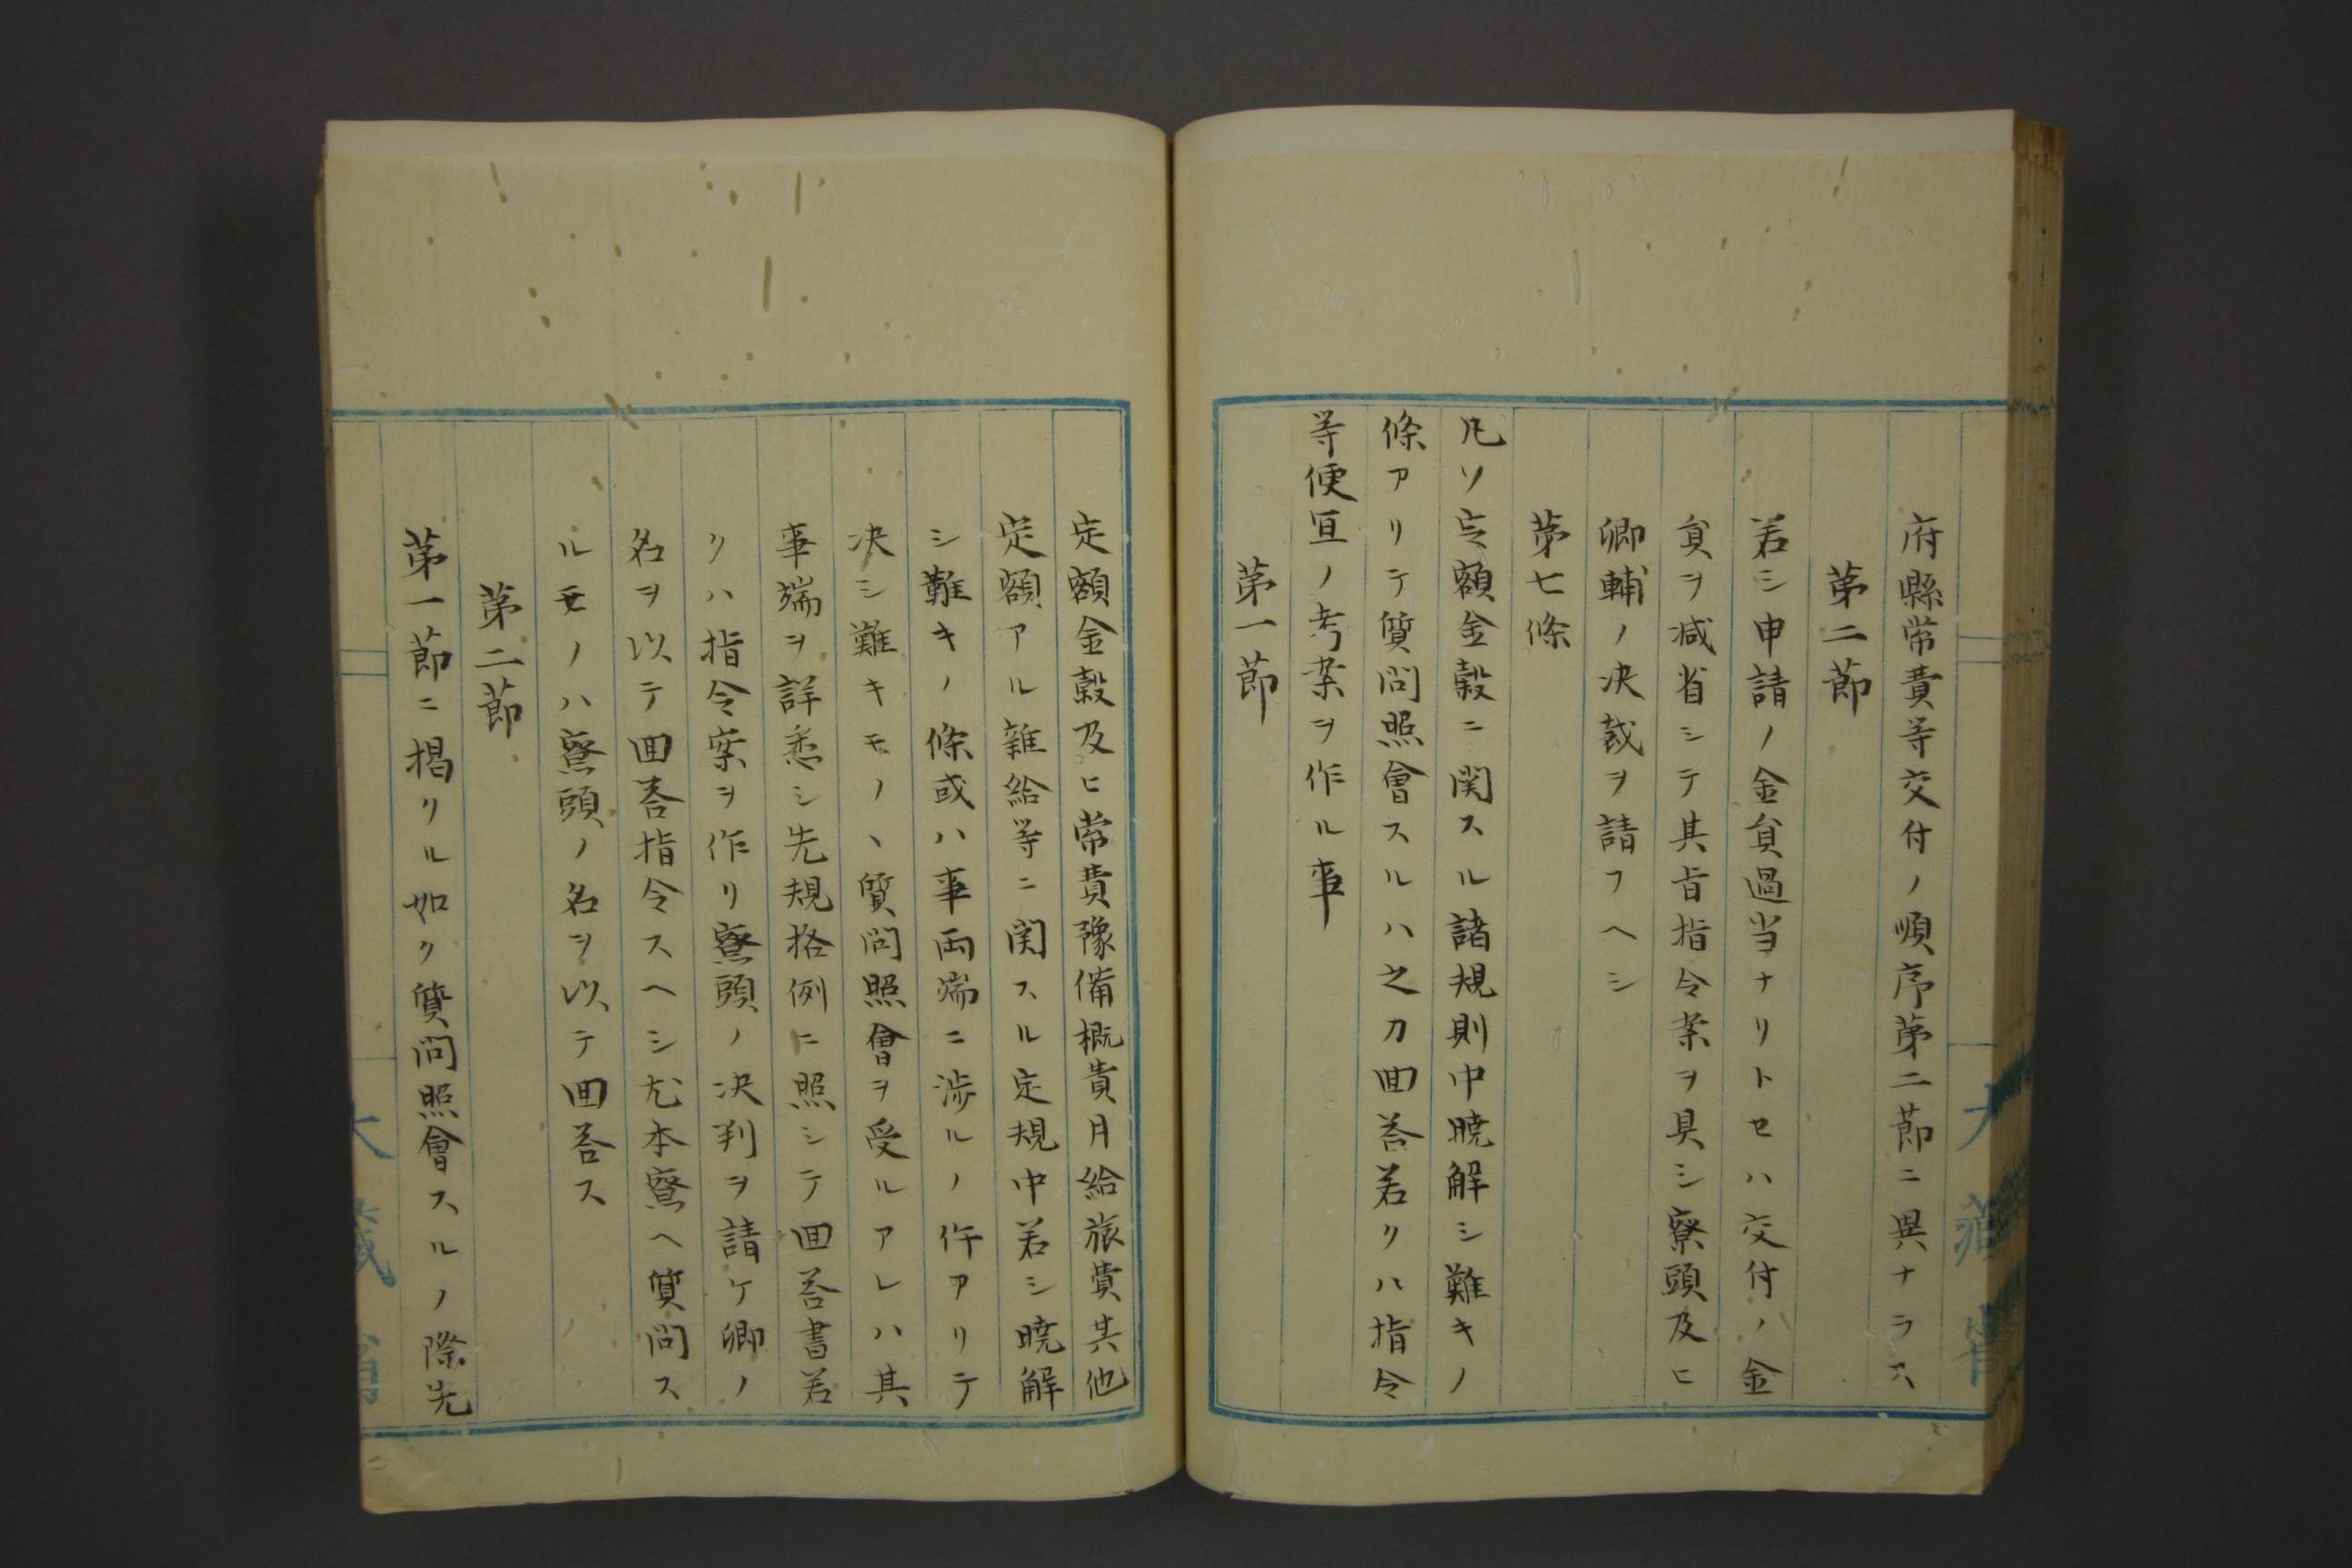 府縣常費等交付ノ順序第二節ニ異ナラス
第二節
若シ申請ノ金員過当ナリトセハ交付ノ金
員ヲ減省シテ其旨指令案ヲ具シ寮頭及ヒ
卿輔ノ决裁ヲ請フヘシ
第七條
凡ソ定額金穀ニ関スル諸規則中暁解シ難キノ
條アリテ質問照會スルハ之カ回答若クハ指令
等便宜ノ考案ヲ作ル事
第一節
定額金穀及ヒ常費豫備概費月給旅費其他
定額アル雑給等ニ関スル定規中若シ暁解
シ難キノ條或ハ事両端ニ渉ルノ件アリテ
决シ難キモノヽ質問照會ヲ受ルアレハ其
事端ヲ詳悉シ先規格例ニ照シテ回答書若
クハ指令案ヲ作リ寮頭ノ决判ヲ請ケ卿ノ
名ヲ以テ回答指令スヘシ尤本寮ヘ質問ス
ルモノハ寮頭ノ名ヲ以テ回答ス
第二節
第一節ニ掲クル如ク質問照會スルノ際先
大藏省